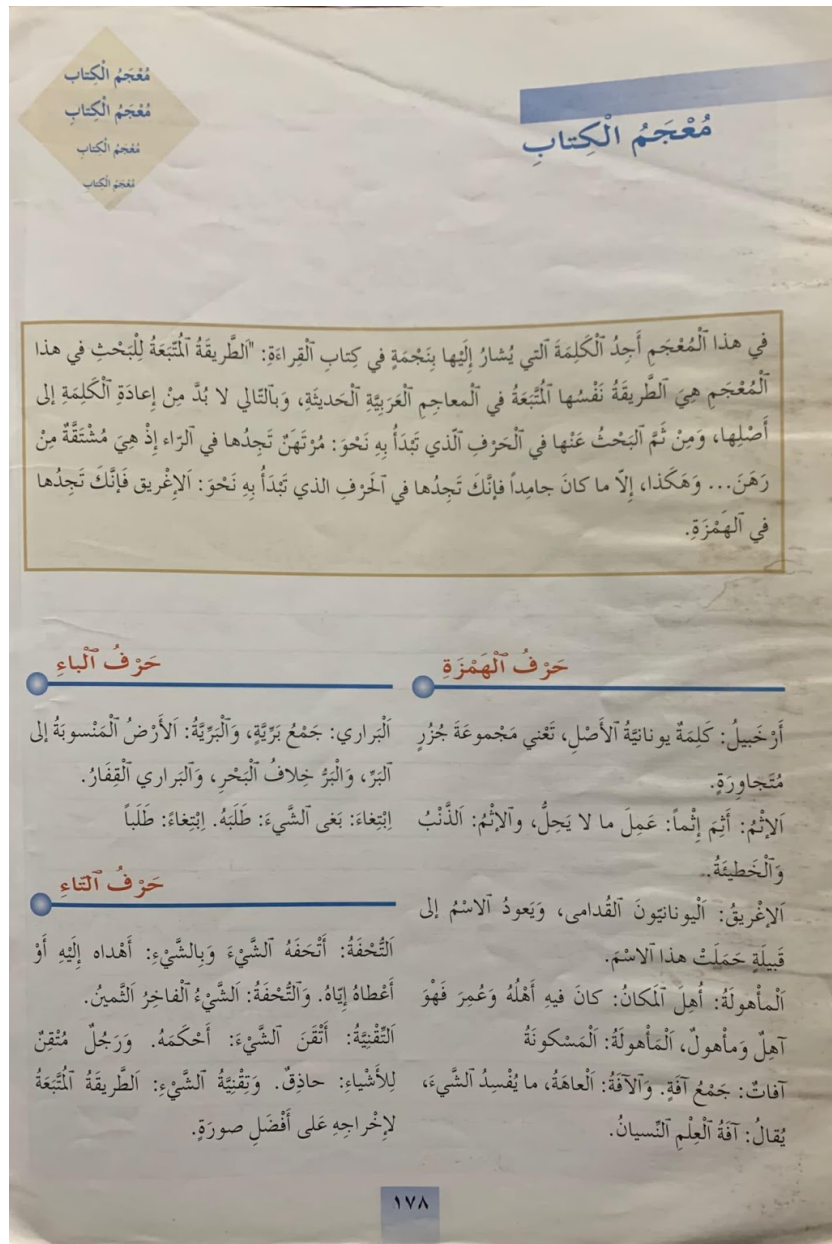 مُعْجَمُ الْكِتابِ
مُعْجَمُ الْكِتابِ
مُعْجَمُ الْكِتابِ
مُعْجَمُ الْكِتابِ
مُعْجَمُ الْكِتابِ
في هذا ٱلْمُعْجَمِ أَجِدُ ٱلْكَلِمَةَ ٱلتي يُشارُ إِلَيْها بِنَجْمَةٍ في كِتابِ ٱلْقِراءَةِ: "ٱلطَّريقَةُ ٱلْمُتَّبَعَةُ لِلْبَحْثِ في هذا
ٱلْمُعْجَمِ هِيَ ٱلطَّريقَةُ نَفْسُها ٱلْمُتَّبَعَةُ في ٱلْمعاجِمِ ٱلْعَرَبِيَّةِ ٱلْحَديثَةِ، وَبِٱلتّالي لا بُدَّ مِنْ إِعادَةِ ٱلْكَلِمَةِ إلى
أَصْلِها، وَمِنْ ثَمَّ ٱلبَحْثُ عَنْها في ٱلْحَرْفِ ٱلّذي تَبْدَأُ بِهِ نَحْوَ: مُرْتَهَنٌ تَجِدُها في ٱلرّاء إذْ هِيَ مُشْتَقَّةٌ مِنْ
رَهَنَ... وَهَكَذا، إِلاّ ما كانَ جامِداً فإنَّكَ تَجِدُها في ٱلحَرْفِ الذي تَبْدَأُ بِهِ نَحْوَ: اَلإغْريق فَإنَّكَ تَجِدُها
في ٱلهَمْزَةِ.
حَرْفُ ٱلْهَمْزَةِ
أَرْخَبيلُ: كَلِمَةٌ يونانيّةُ ٱلأَصْلِ، تَعْني مَجْموعَةَ جُزُرٍ
مُتَجاوِرَةٍ.
اَلإثْمُ: أَثِمَ إثْماً: عَمِلَ ما لا يَحِلُّ، وٱلإثْمُ: اَلذَّنْبُ
وَٱلْخَطيئَةُ..
اَلإغْريقُ: اَلْيونانيّونَ ٱلقُدامى، وَيَعودُ ٱلاسْمُ إلى
قَبيلَةٍ حَمَلَتْ هذا ٱلاسْمَ.
اَلْمأْهولَةُ: أُهِلَ ٱلمَكانُ: كانَ فيهِ أَهْلُهُ وَعُمِرَ فَهْوَ
آهِلٌ وَمأْهولٌ، اَلْمَأْهولَةُ: اَلْمَسْكونَةُ
آفاتٌ: جَمْعُ آفَةٍ. وَٱلآفَةُ: اَلْعاهَةُ، ما يُفْسِدُ ٱلشَّيءَ،
يُقالُ: آفَةُ ٱلْعِلْمِ ٱلنِّسيانُ.
حَرْفُ ٱلْباءِ
اَلْبَراري: جَمْعُ بَرِّيَّةٍ، وَٱلْبَرِّيَّةُ: اَلأَرْضُ ٱلْمَنْسوبَةُ إلى
ٱلبَرِّ، وَٱلْبَرُّ خِلافُ ٱلْبَحْرِ، وَٱلبَراري ٱلْقِفَارُ.
اِبْتِغاءَ: بَغى ٱلشَّيءَ: طَلَبَهُ. اِبْتِغاءً: طَلَباً
حَرْفُ ٱلتّاءِ
اَلتُّحْفَةُ: أَتْحَفَهُ ٱلشَّيْءَ وَبِالشَّيْءِ: أَهْداه إِلَيْهِ أَوْ
أَعْطاهُ إيّاهُ. وَٱلتُّحْفَةُ: اَلشَّيْءُ ٱلْفاخِرُ ٱلثَّمينُ.
اَلتَّقْنِيَّةُ: أَتْقَنَ ٱلشَّيْءَ: أَحْكَمَهُ. وَرَجُلٌ مُتْقِنٌ
لِلأَشْياءِ: حاذِقٌ. وَتِقْنِيَّةُ ٱلشَّيْءِ: اَلطَّريقَةُ ٱلْمُتَّبَعَةُ
لإخْراجِهِ عَلى أَفْضَلِ صورَةٍ.
١٧٨